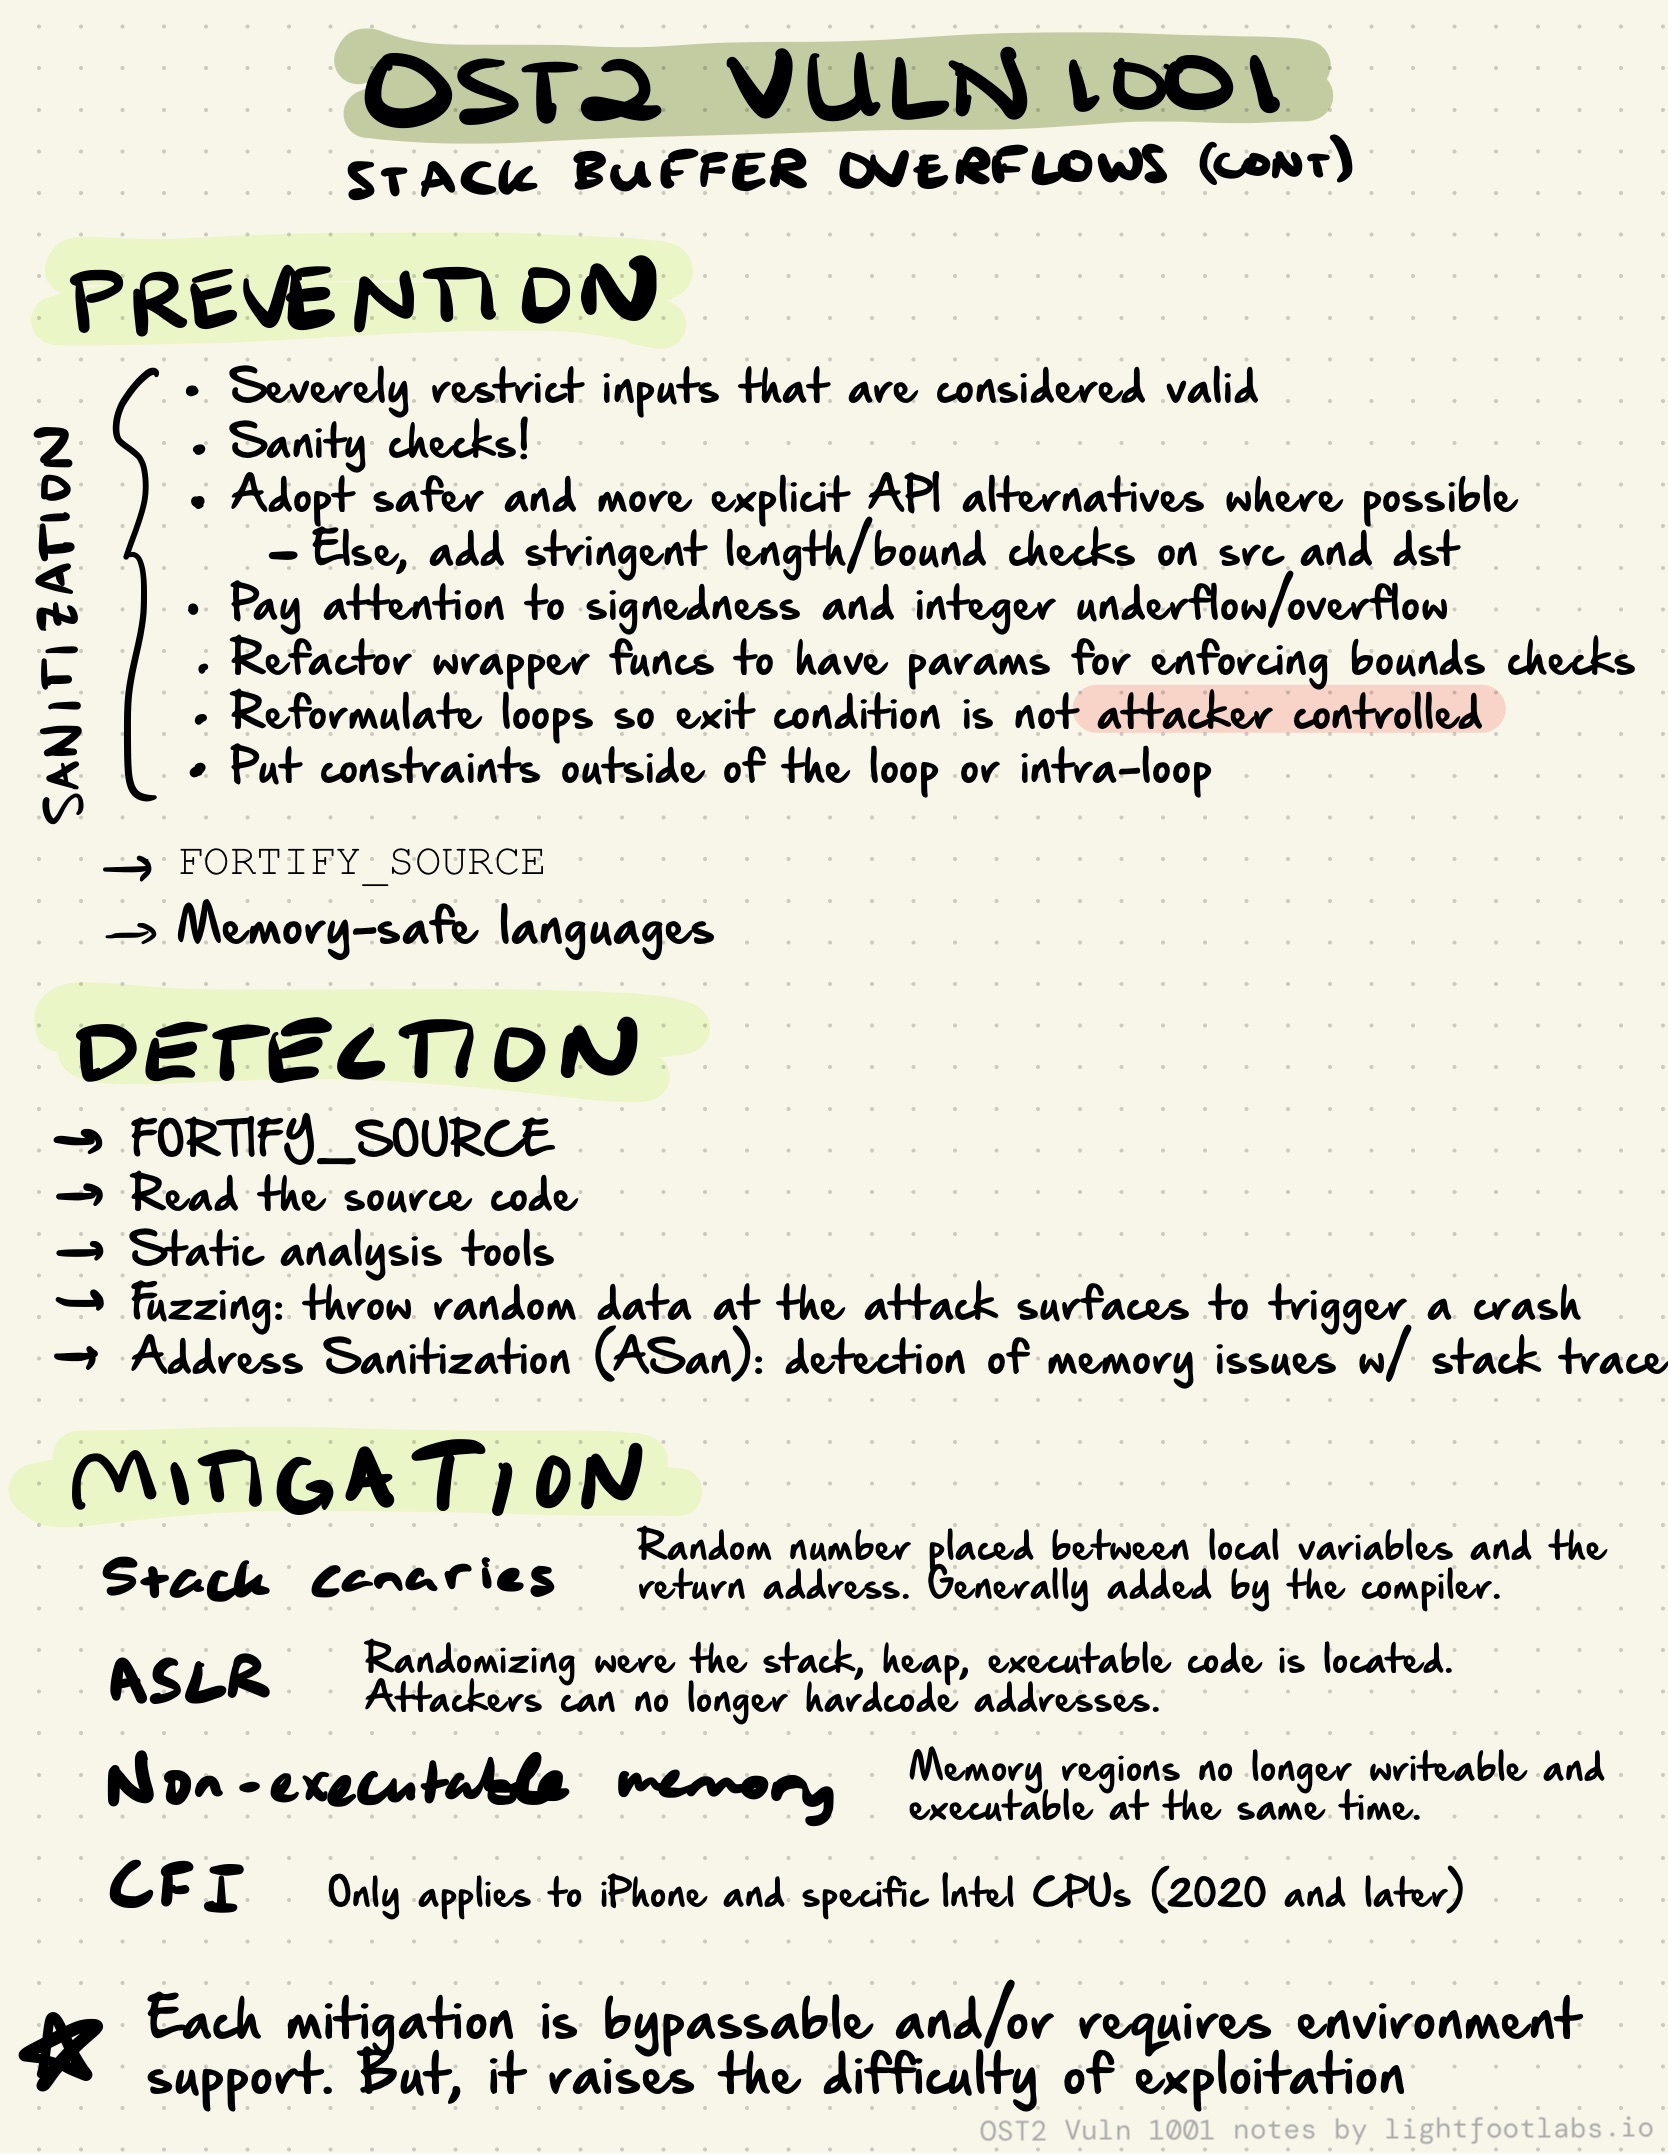 OST2 VULN 1001
STACK BUFFER OVERFLOWS (CONT)
PREVENTION
SANITIZATION
• Severely restrict inputs that are considered valid
• Sanity checks!
• Adopt safer and more explicit API alternatives where possible
– Else, add stringent length/bound checks on src and dst
• Pay attention to signedness and integer underflow/overflow
• Refactor wrapper funcs to have params for enforcing bounds checks
• Reformulate loops so exit condition is not attacker controlled
• Put constraints outside of the loop or intra-loop
→ FORTIFY_SOURCE
→ Memory-safe languages
DETECTION
→ FORTIFY_SOURCE
→ Read the source code
→ Static analysis tools
→ Fuzzing: throw random data at the attack surfaces to trigger a crash
→ Address Sanitization (ASan): detection of memory issues w/ stack trace
MITIGATION
Stack canaries
Random number placed between local variables and the
return address. Generally added by the compiler.
ASLR
Randomizing were the stack, heap, executable code is located.
Attackers can no longer hardcode addresses.
Non-executable memory
Memory regions no longer writeable and
executable at the same time.
CFI
Only applies to iPhone and specific Intel CPUs (2020 and later)
Each mitigation is bypassable and/or requires environment
support. But, it raises the difficulty of exploitation
OST2 Vuln 1001 notes by lightfootlabs.io